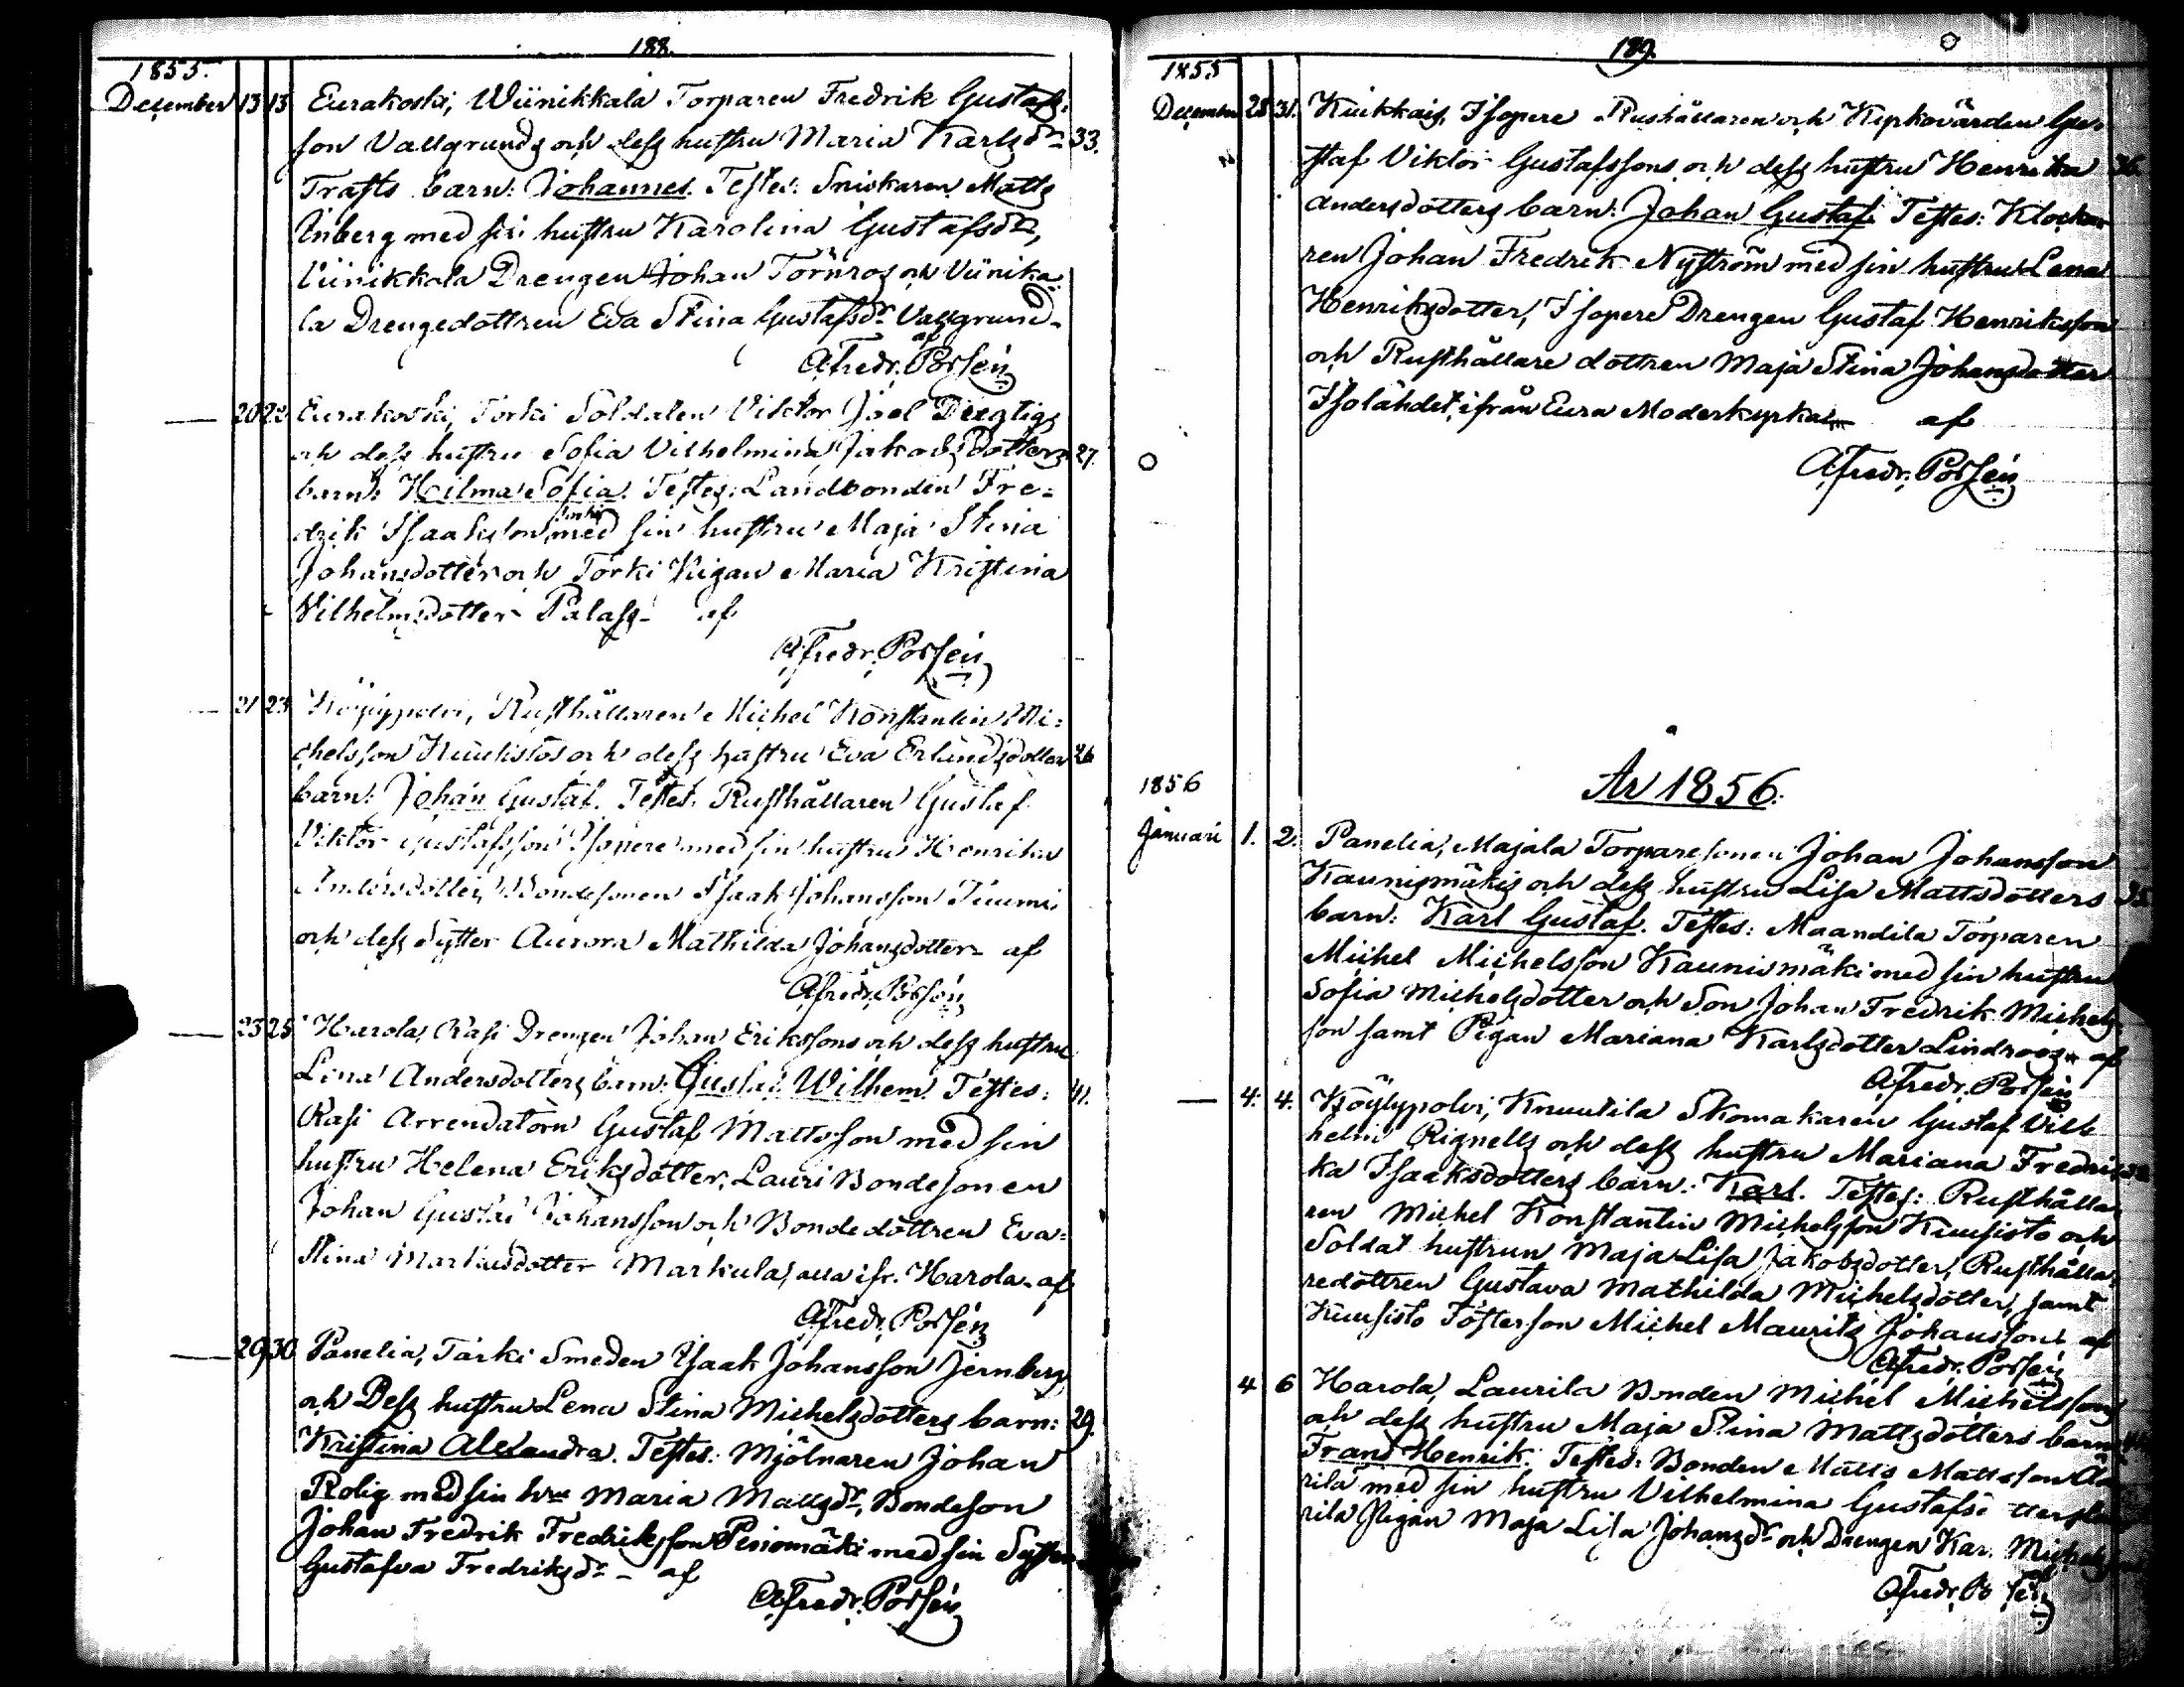 188.
1855.
December 13 15 Eurakoski, Wiinikkala Torparen Fredrik Gustafs-
son Vallgrunds och dess hustru Maria Karlsdr 33.
Trafts barn: Johannes. Testes: Sniskaren Matts
Inberg med sin hustru Karolina Gustafsdr,
Viinikkala Drengen Johan Törnros och Viinika
la Drengedottren Eva Stina Gustafsdr Vallgrund-
af
Afredr. Porsén
— 20 22 Eurakoski, Torki Soldaten Viktor Joel Dugtigs
och dess hustru Sofia Vilhelmina Jakobsdotters 27.
barn: Hilma Sofia. Testes: Landbonden Fre-
drik Isaaksson Torki med sin hustru Maja Stina
Johansdotter och Torki Pigan Maria Kristina
Vilhelmsdotter Palass- af
Afredr. Porsén
— 21 23 Köylypolvi, Rusthållaren Michel Konstantin Mi-
chelsson Kuusistos och dess hustru Eva Erlandsdotters 26
barn: Johan Gustaf. Testes: Rusthållaren Gustaf
Viktor Gustafsson Isopere med sin hustru Henrika
Andersdotter, Bondesonen Isaak Johansson Tuumi
och dess Syster Aurora Mathilda Johansdotter- af
Afredr. Porsén
— 23 25 Harola, Rasi Drengen Johan Erikssons och dess hustru
Lena Andersdotters barn: Gustaf Wilhem. Testes: 41.
Rasi Arrendatorn Gustaf Mattsson med sin
hustru Helena Eriksdotter, Lauri Bondesonen
Johan Gustaf Johansson och Bondedottren Eva
Stina Markusdotter Markula, alla ifr. Harola- af
Afredr. Porsén
— 29 30 Panelia, Tarki Smeden Isaak Johansson Jernberg
och Dess hustru Lena Stina Michelsdotters barn: 29.
Kristina Alexandra. Testes: Mjölnaren Johan
Rolig med sin hru Maria Mattsdr, Bondeson
Johan Fredrik Fredriksson Peniomäki med sin Syster
Gustafva Fredriksdr- af
Afredr. Porsén
189.
1855
December 28 31. Kiukkais, Isopere Rushållaren och Kyrkovärden Gu-
staf Viktor Gustafssons och dess hustru Henrika 36.
Andersdotters barn: Johan Gustaf. Testes: Klocka-
ren Johan Fredrik Nyström med sin hustru Lena
Henriksdotter, Isopere Drengen Gustaf Henriksson
och Rusthållare dottren Maja Stina Johansdotter
Isolähdet, ifrån Eura Moderkyrka— af
Afredr. Porsén
År 1856.
1856
Januari 1. 2. Panelia, Majala Torparesonen Johan Johansson
Kaunismäkis och dess hustru Lisa Mattsdotters 35
barn: Karl Gustaf. Testes: Maandila Torparen
Michel Michelsson Kaunismäki med sin hustru
Sofia Michelsdotter och Son Johan Fredrik Michels-
son samt Pigan Mariana Karlsdotter Lindroos af
Afredr. Porsén
— 4. 4. Köylypolvi, Knuutila Skomakaren Gustaf Vilh
helm Rignells och dess hustru Mariana Fredri
ka Isaaksdotters barn: Karl. Testes: Rusthålla
ren Michel Konstantin Michelsson Kuusisto och
Soldat hustrun Maja Lisa Jakobsdotter, Rusthålla-
redottren Gustava Mathilda Michelsdotter, samt
Kuusisto Fosterson Michel Maurits Johansson, af
Afredr. Porsén
4 6 Harola, Laurila Bonden Michel Michelssons
och dess hustru Maja Stina Mattsdotters barn:
Frans Henrik. Testes: Bonden Matts Mattsson
rila med sin hustru Vilhelmina
rila Pigan Maja Lisa Johansdr och Drengen Kar. Michelsson
Afredr. Porsén